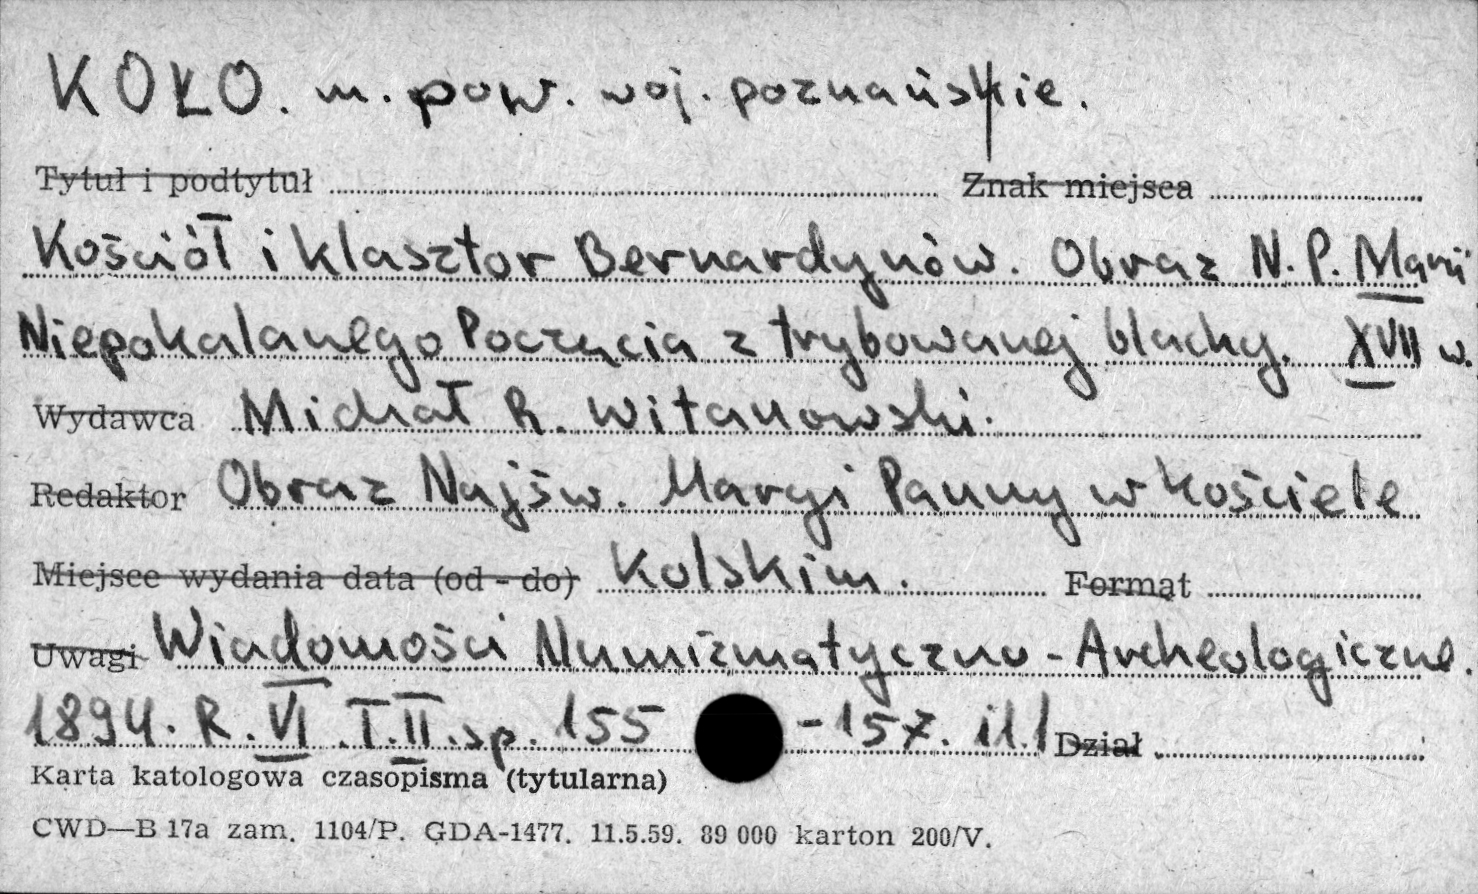 KOŁO. m. pow. woj. poznańskie.
Tytuł i podtytuł Znak miejsca
Kościół i klasztor Bernardynów. Obraz N. P. Marii
Niepokalanego Poczęcia z trybowanej blachy. XVII w.
Wydawca Michał R. Witanowski.
Redaktor Obraz Najśw. Maryi Panny w kościele
Miejsce wydania data (od - do) Kolskim. Format
Uwagi Wiadomości Numizmatyczno - Archeologiczne.
1894. R. VI. T. II. sp. 155 - 157. il. 1 Dział
Karta katologowa czasopisma (tytularna)
CWD—B 17a zam. 1104/P. GDA-1477. 11.5.59. 89 000 karton 200/V.